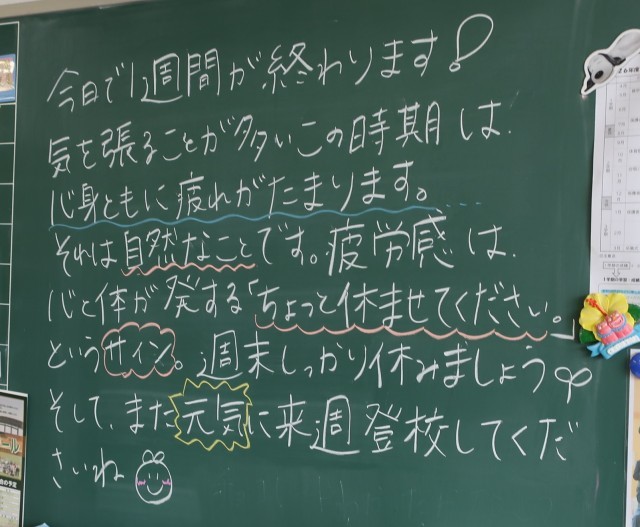 今日で1週間が終わります!
気を張ることが多いこの時期は、
心身ともに疲れがたまります。....
それは自然なことです。疲労感は、
心と体が発する「ちょっと休ませてください。」
というサイン。週末しっかり休みましょう
そして、また元気に来週登校してくだ
さいね